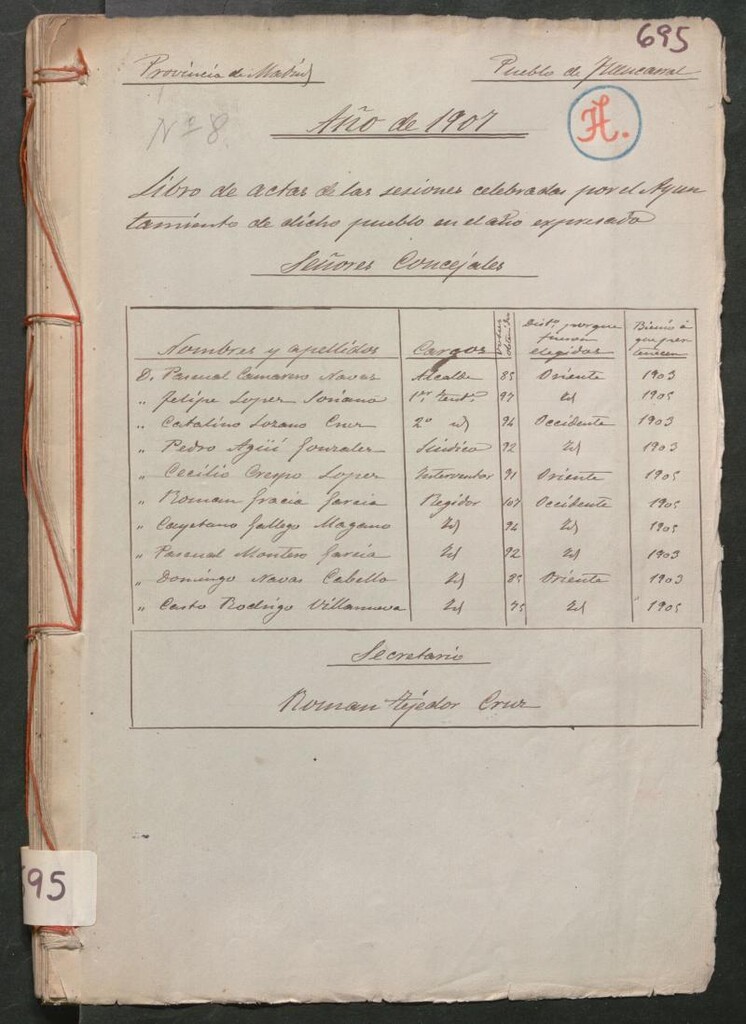 695
Provincia de Madrid Pueblo de Fuencarral
Nº 8
Año de 1907
H.
Libro de actas de las sesiones celebradas por el Ayun
tamiento de dicho pueblo en el año expresado
Señores Concejales
Nombres y apellidos Cargos Votos obtenidos Distº porque fueron elegidos Bienio á que pertenecen
D. Pascual Camarero Navas Alcalde 85 Oriente 1903
" Felipe Lopez Soriano 1er tente 97 id 1905
" Catalino Lozano Cruz 2º id 94 Occidente 1903
" Pedro Agüí Gonzalez Sindico 92 Id 1903
" Cecilio Crespo Lopez Interventor 91 Oriente 1905
" Roman Gracia Garcia Regidor 107 Occidente 1905
" Cayetano Gallego Magano Id 94 Id 1905
" Pascual Montero Garcia Id 92 Id 1903
" Domingo Navas Cabello Id 85 Oriente 1903
" Casto Rodrigo Villanueva Id 75 Id 1905
Secretario
Roman Tejedor Cruz
95